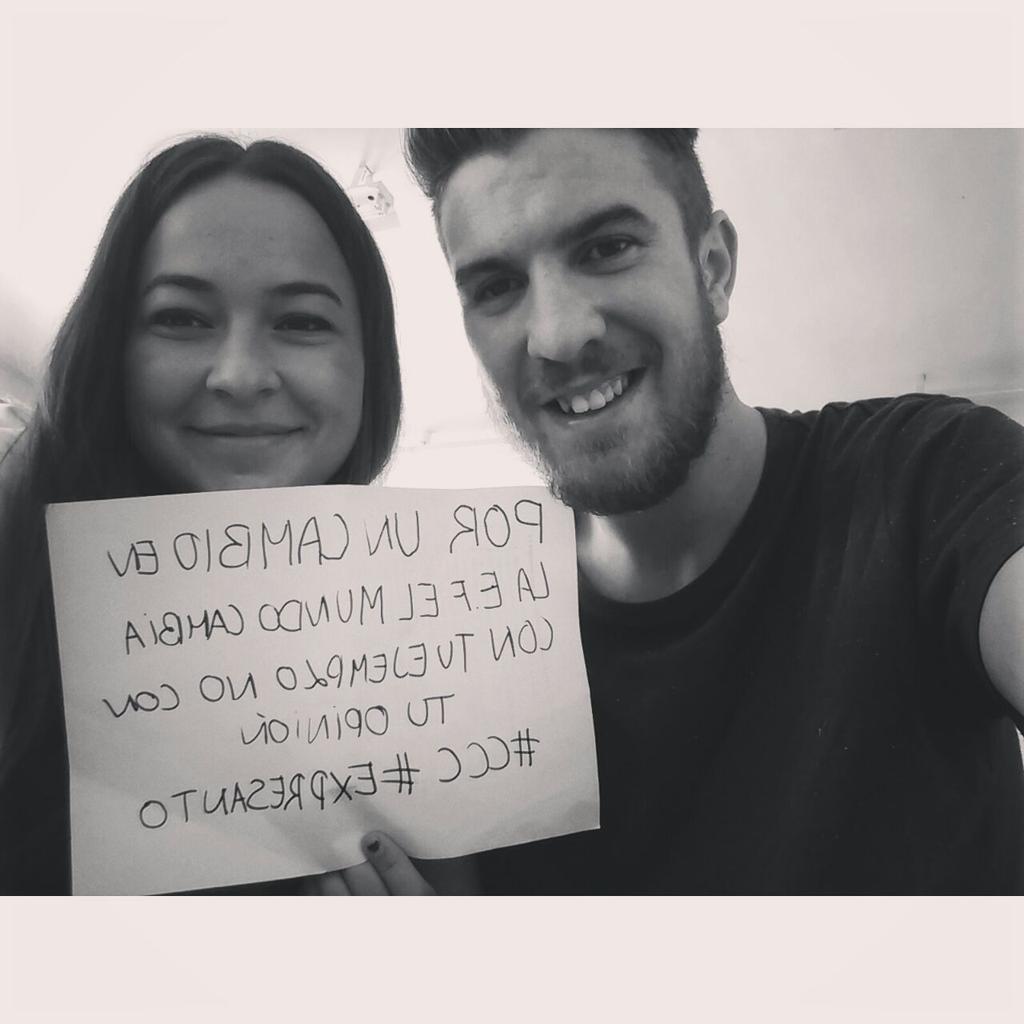 POR UN CAMBIO EN
LA E.F. EL MUNDO CAMBIA
CON TU EJEMPLO NO CON
TU OPINIÓN
#CCC #EXPRESANTO